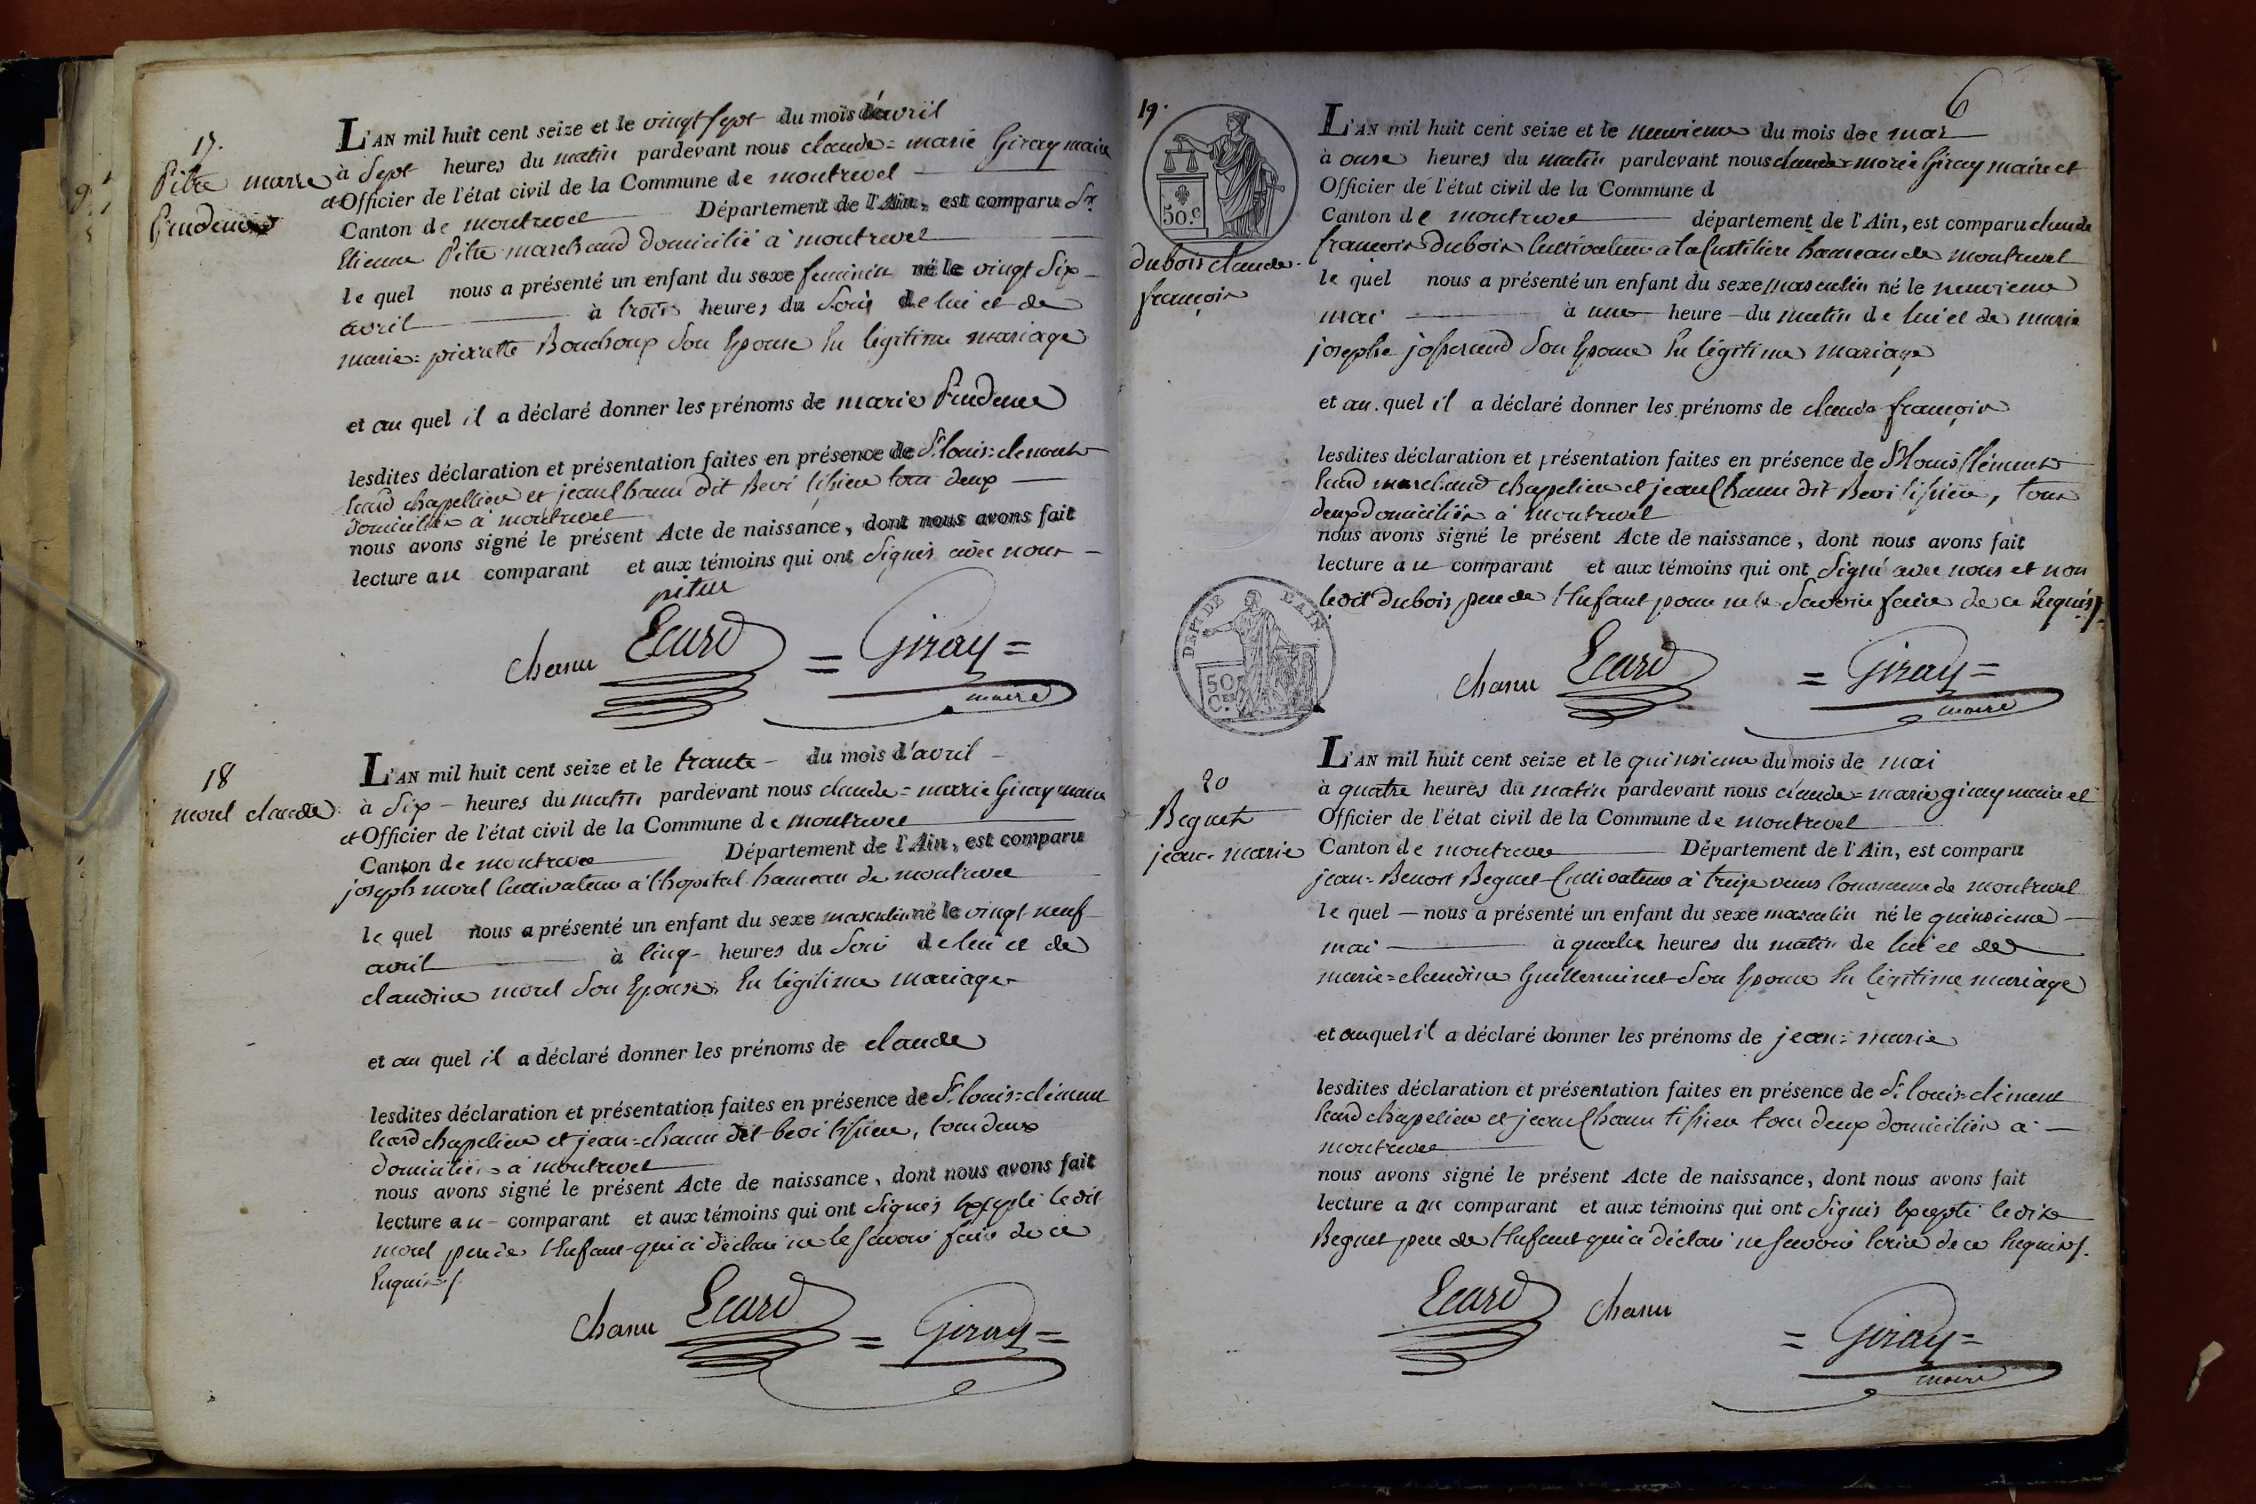 17.
Pitre marie
Prudence
L'AN mil huit cent seize et le vingt sept du mois d'avril
à sept heures du matin pardevant nous claude = marie Giray maire
et Officier de l'état civil de la Commune de montrevel
Canton de montrevel Département de l'Ain, est comparu Sr
Etienne Pitre marchand domicilié à montrevel
le quel nous a présenté un enfant du sexe feminin né le vingt six
avril à trois heures du soir de lui et de
marie = pierrette Bouchoux son Epouse En légitime mariage
et au quel il a déclaré donner les prénoms de marie Prudence
lesdites déclaration et présentation faites en présence de Sr louis = clement
Ecard chapellier et jean Chanu dit Bevi tissier tous deux
domiciliés à montrevel
nous avons signé le présent Acte de naissance, dont nous avons fait
lecture au comparant et aux témoins qui ont signés avec nous
pitre
chanu Ecard = Giray =
maire
18
morel claude
L'AN mil huit cent seize et le trante du mois d'avril
à six heures du matin pardevant nous claude = marie Giray maire
et Officier de l'état civil de la Commune de montrevel
Canton de montrevel Département de l'Ain, est comparu
joseph morel Cultivateur à l'hopital hameau de montrevel
le quel nous a présenté un enfant du sexe masculin né le vingt neuf
avril à Cinq heures du soir de lui et de
claudine morel son Epouse En légitime mariage
et au quel il a déclaré donner les prénoms de claude
lesdites déclaration et présentation faites en présence de Sr louis = clément
Ecard chapelier et jean = chanu dit bevi tissier, tous deux
domiciliés à montrevel
nous avons signé le présent Acte de naissance, dont nous avons fait
lecture au comparant et aux témoins qui ont signés Excepté ledit
morel pere de l'Enfant qui a déclaré ne le savoir faire de ce
Enquis
chanu Ecard = Giray =
6
19.
50.c
dubois claude
françois
L'AN mil huit cent seize et le neuvieme du mois de mai
à onse heures du matin pardevant nous claude = marie Giray maire et
Officier de l'état civil de la Commune d
Canton de montrevel département de l'Ain, est comparu claude
françois Dubois Cultivateur à la hameau de montrevel
le quel nous a présenté un enfant du sexe masculin né le neuvieme
mai à une heure du matin de lui et de marie
josephe josserand son Epouse En légitime mariage
et au quel il a déclaré donner les prénoms de claude françois
lesdites déclaration et présentation faites en présence de Sr louis Clément
Ecard marchand chapelier et jean Chanu dit Bevi tissier, tous
deux domiciliés à montrevel
nous avons signé le présent Acte de naissance, dont nous avons fait
lecture au comparant et aux témoins qui ont signé avec nous et non
ledit dubois pere de l'Enfant pour ne le savoir faire de ce Enquis
DEP. DE L'AIN
50 C.
chanu Ecard = Giray =
maire
20
Beguet
jean = marie
L'AN mil huit cent seize et le quinsieme du mois de mai
à quatre heures du matin pardevant nous claude = marie giray maire et
Officier de l'état civil de la Commune de montrevel
Canton de montrevel Département de l'Ain, est comparu
jean = Benoit Beguet Cultivateur à Commune de montrevel
le quel nous a présenté un enfant du sexe masculin né le quinsieme
mai à quatre heures du matin de lui et de
marie = claudine Guillerminet son Epouse En légitime mariage
et au quel il a déclaré donner les prénoms de jean = marie
lesdites déclaration et présentation faites en présence de Sr louis = clément
Ecard chapelier et jean Chanu tissier tous deux domiciliés à
montrevel
nous avons signé le présent Acte de naissance, dont nous avons fait
lecture a au comparant et aux témoins qui ont signés Excepté ledit
Beguet pere de l'Enfant qui a déclaré ne savoir Ecrire de ce Enquis
Ecard chanu
= Giray =
maire